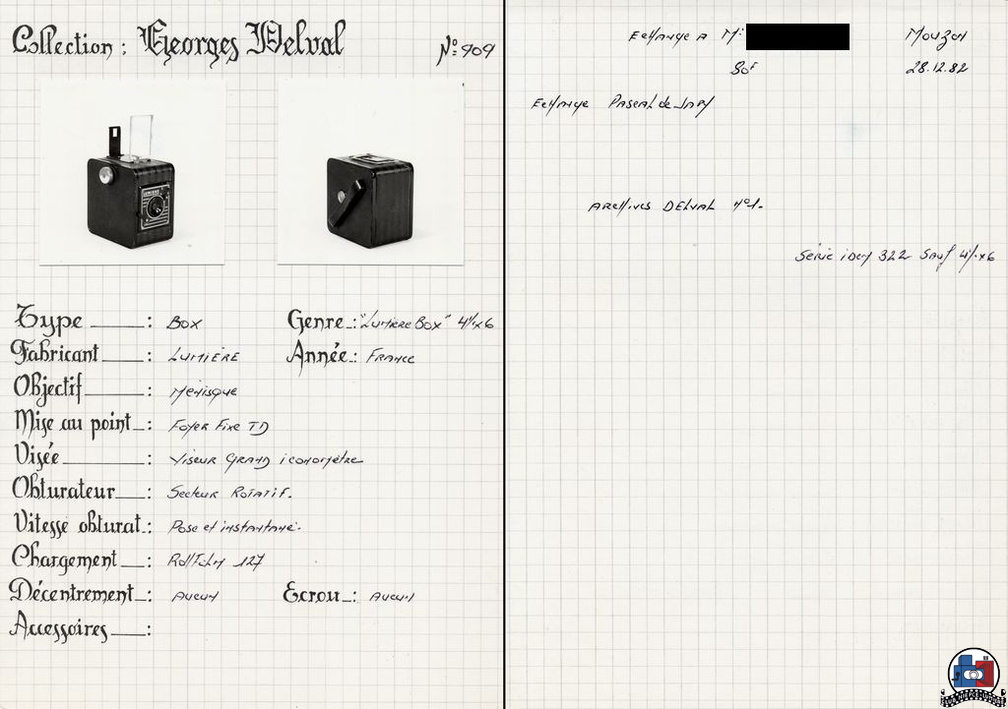 Collection : Georges Delval N°: 909
Type : Box
Genre : "Lumière Box" 4½x6
Fabricant : LUMIÈRE
Année : FRANCE
Objectif : Ménisque
Mise au point : Foyer Fixe TD
Visée : Viseur GRAND iconomètre
Obturateur : Secteur ROTATIF.
Vitesse obturat. : Pose et instantané.
Chargement : Rollfilm 127
Décentrement : Aucun
Ecrou : Aucun
Accessoires :
Echange A Mr Mouzon
80F 28.12.82
Echange Pascal de
ARCHIVES DELVAL N°1.
Série iden 322 Sauf 4½x6